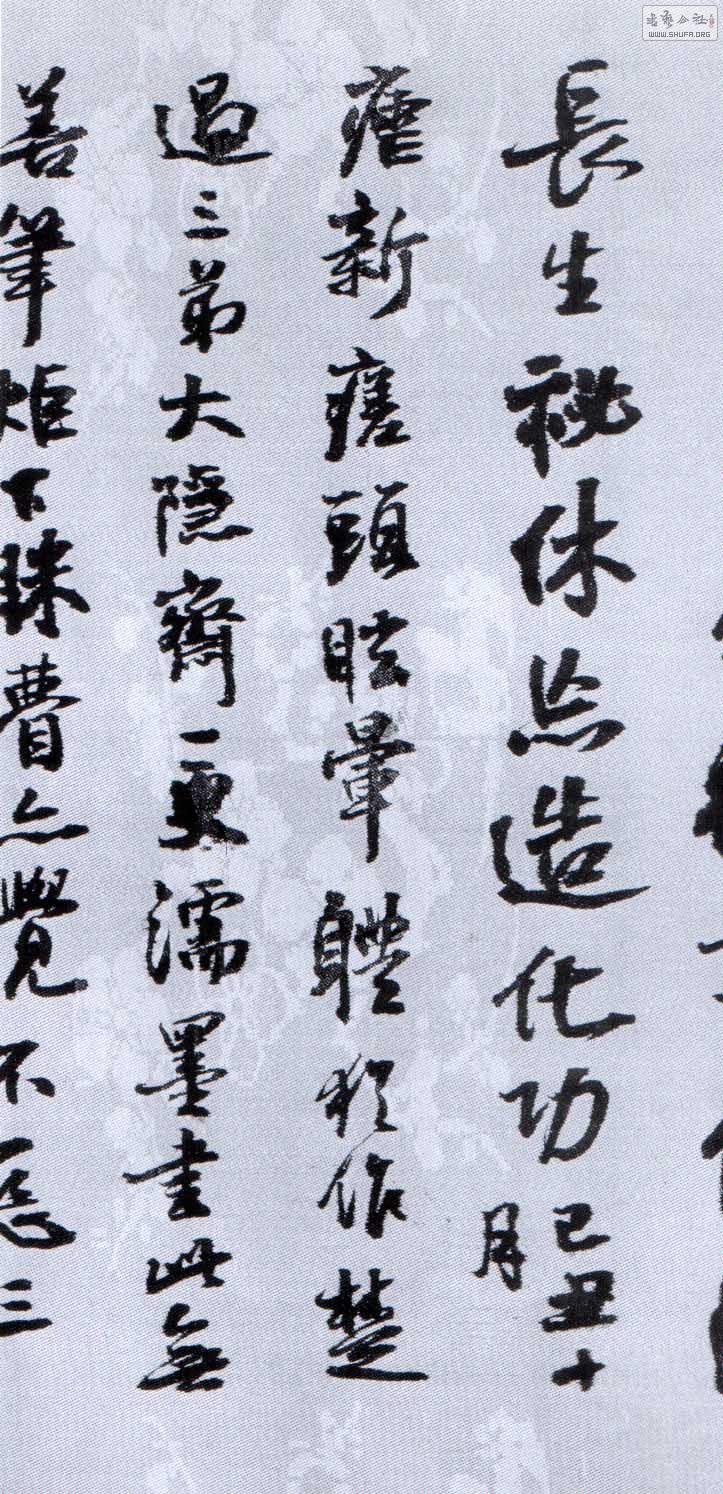 長生祕休点造化功己丑十
月
瘧新瘥頭眩暈體猶作楚
過三弟大隱齋更濡墨書此無
善筆炬下殊費亦覺不惡三
书艺公社
WWW.SHUFA.ORG